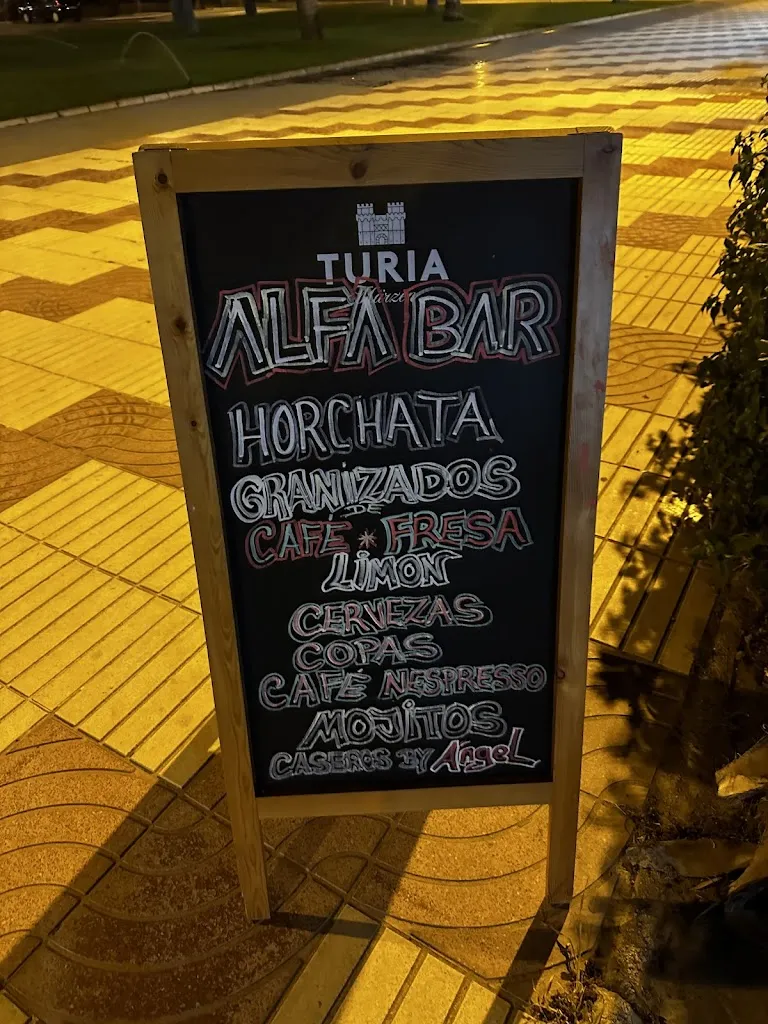 TURIA
Märzen
ALFA BAR
HORCHATA
GRANIZADOS
DE
CAFÉ * FRESA
LIMON
CERVEZAS
COPAS
CAFÉ NESPRESSO
MOJITOS
CASEROS BY Angel